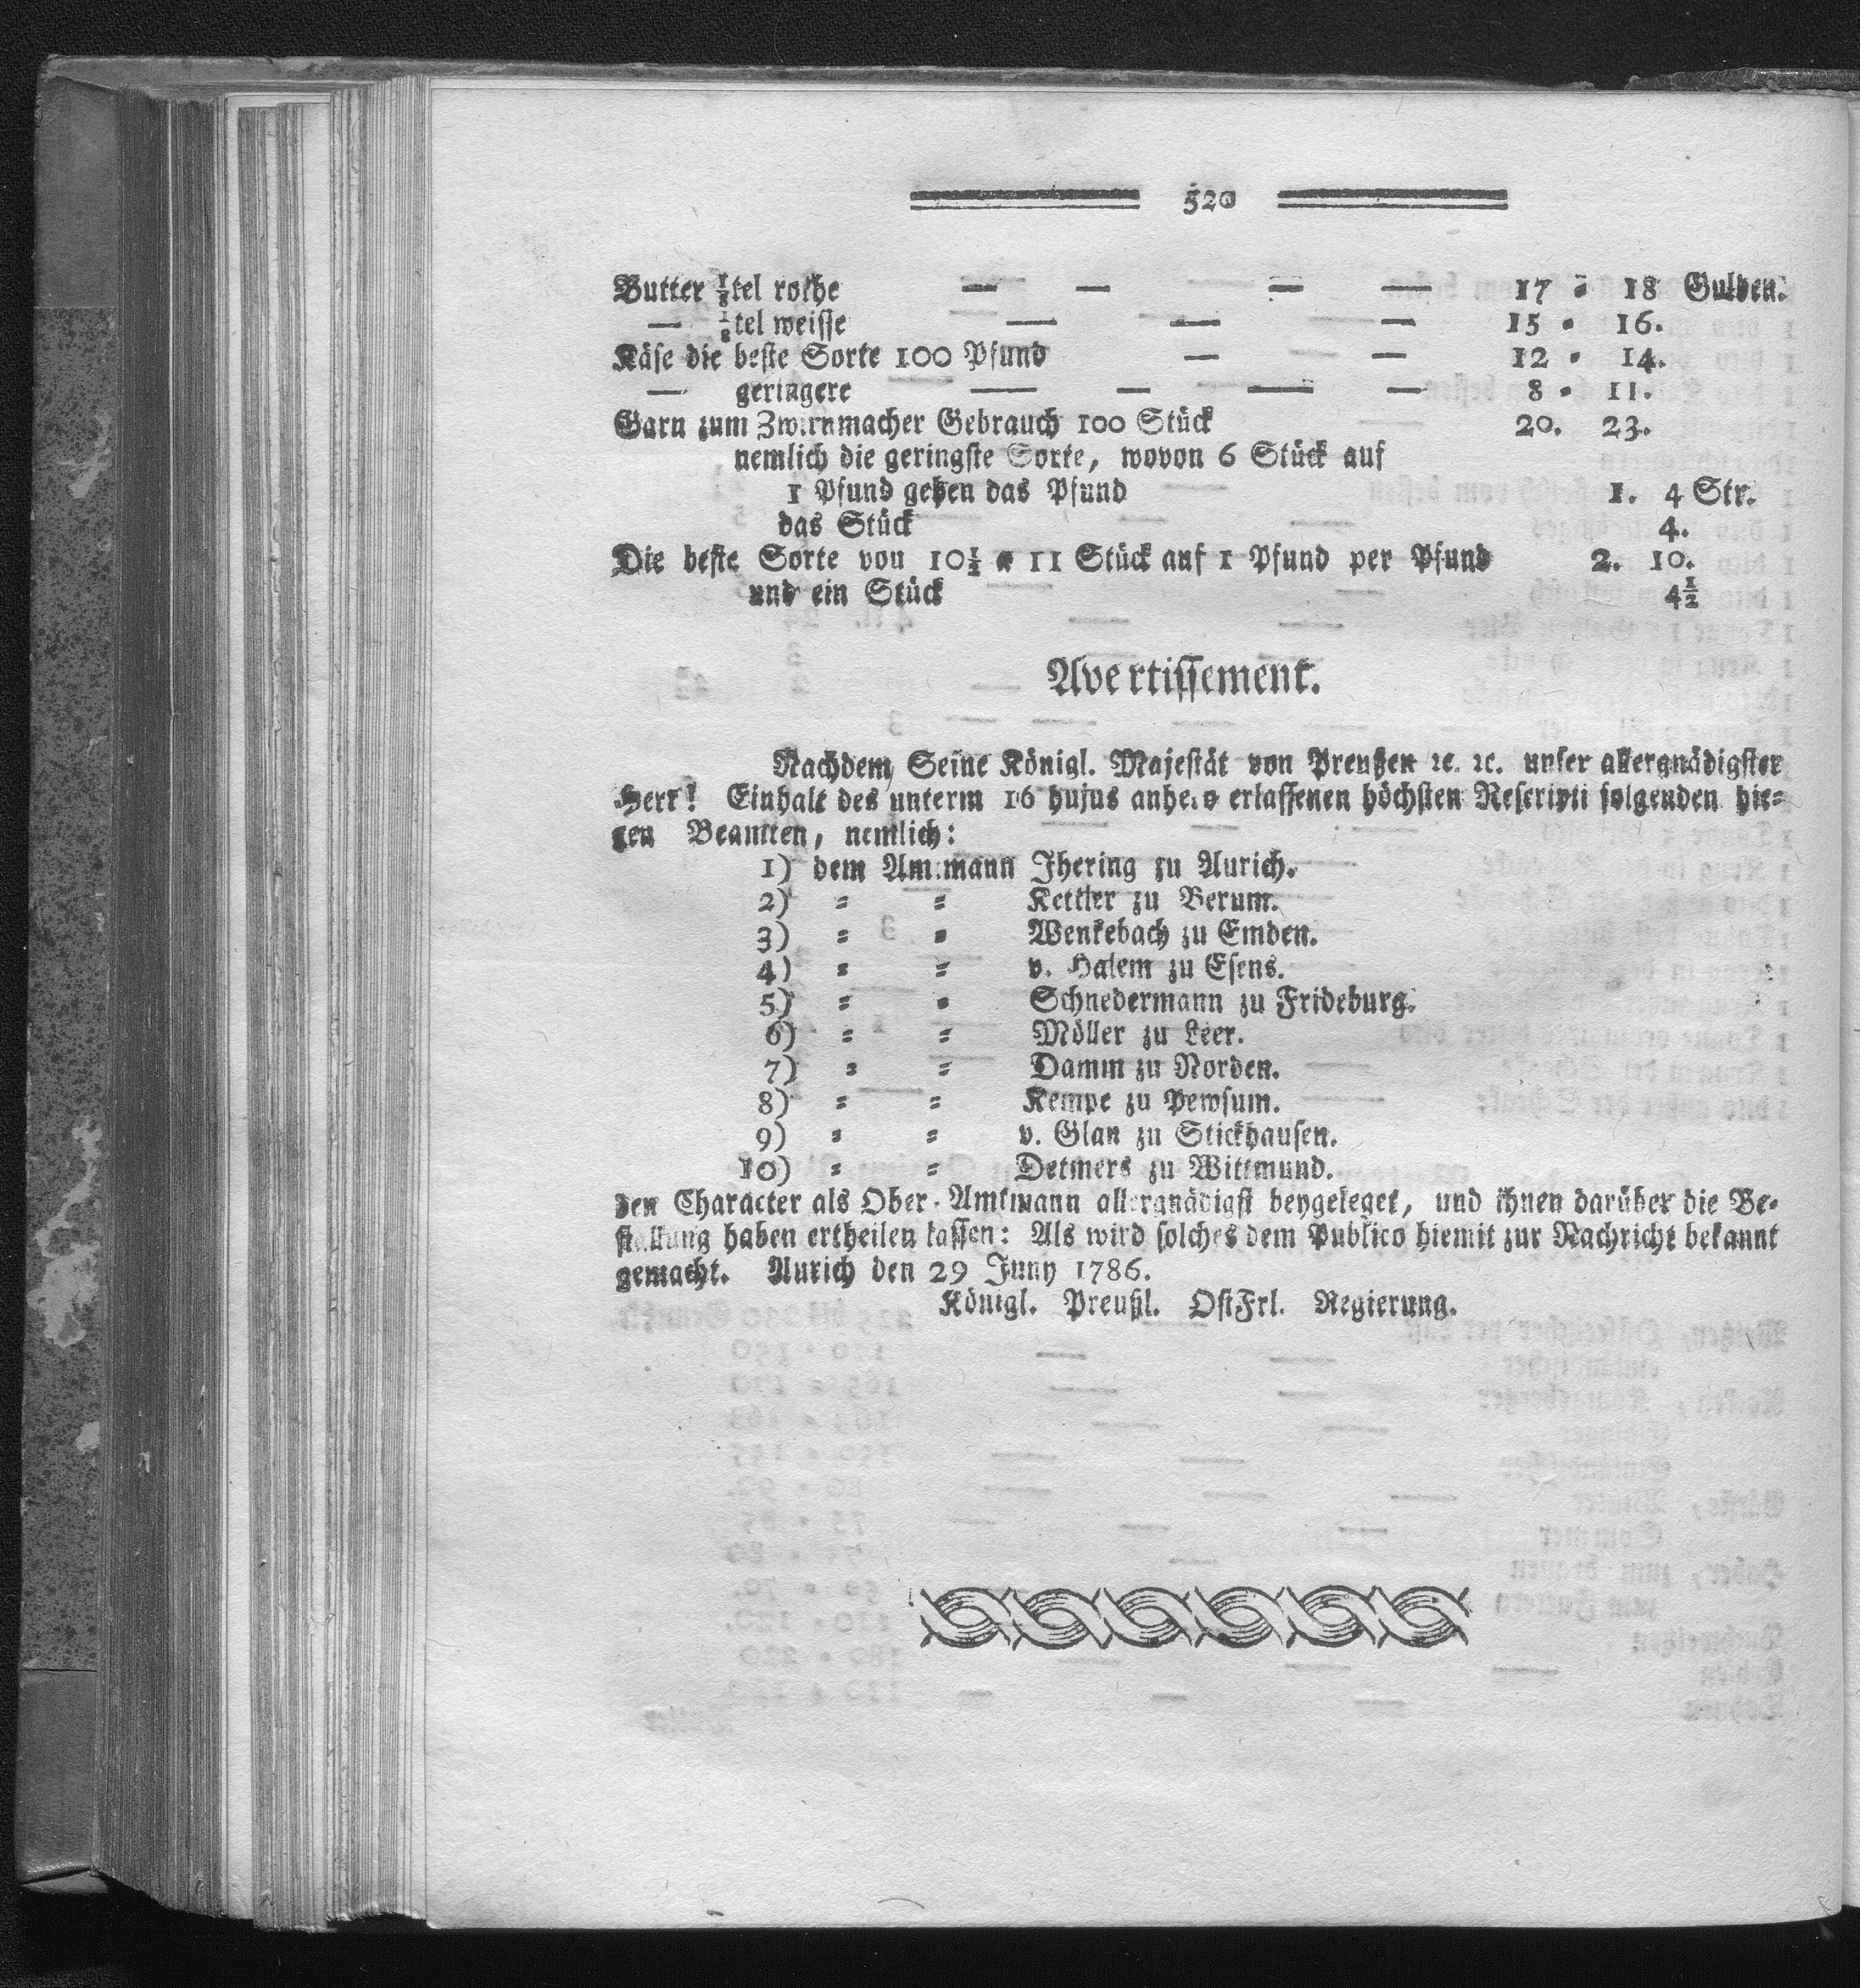 520
Butter ⅛tel rothe — — — — 17 = 18 Gulden.
— ⅛tel weisse — — — 15 = 16.
Käse die beste Sorte 100 Pfund — — 12 = 14.
— geringere — — — — 8 = 11.
Garn zum Zwirnmacher Gebrauch 100 Stück 20. 23.
nemlich die geringste Sorte, wovon 6 Stück auf
1 Pfund gehen das Pfund 1. 4 Str.
das Stück 4.
Die beste Sorte von 10½ a 11 Stück auf 1 Pfund per Pfund 2. 10.
und ein Stück 4½
Avertissement.
Nachdem Seine Königl. Majestät von Preußen ꝛc. ꝛc. unser allergnädigster
Herr! Einhalt des unterm 16 hujus anhero erlassenen höchsten Rescripti folgenden hie=
gen Beamten, nemlich:
1) dem Amtmann Jhering zu Aurich.
2) = = Kettler zu Berum.
3) = = Wenkebach zu Emden.
4) = = v. Halem zu Esens.
5) = = Schnedermann zu Frideburg.
6) = = Möller zu Leer.
7) = = Damm zu Norden.
8) = = Kempe zu Pewsum.
9) = = v. Glan zu Stickhausen.
10) = = Detmers zu Wittmund.
den Character als Ober-Amtmann allergnädigst beygeleget, und ihnen darüber die Be=
stallung haben ertheilen lassen: Als wird solches dem Publico hiemit zur Nachricht bekannt
gemacht. Aurich den 29 Juny 1786.
Königl. Preußl. OstFrl. Regierung.